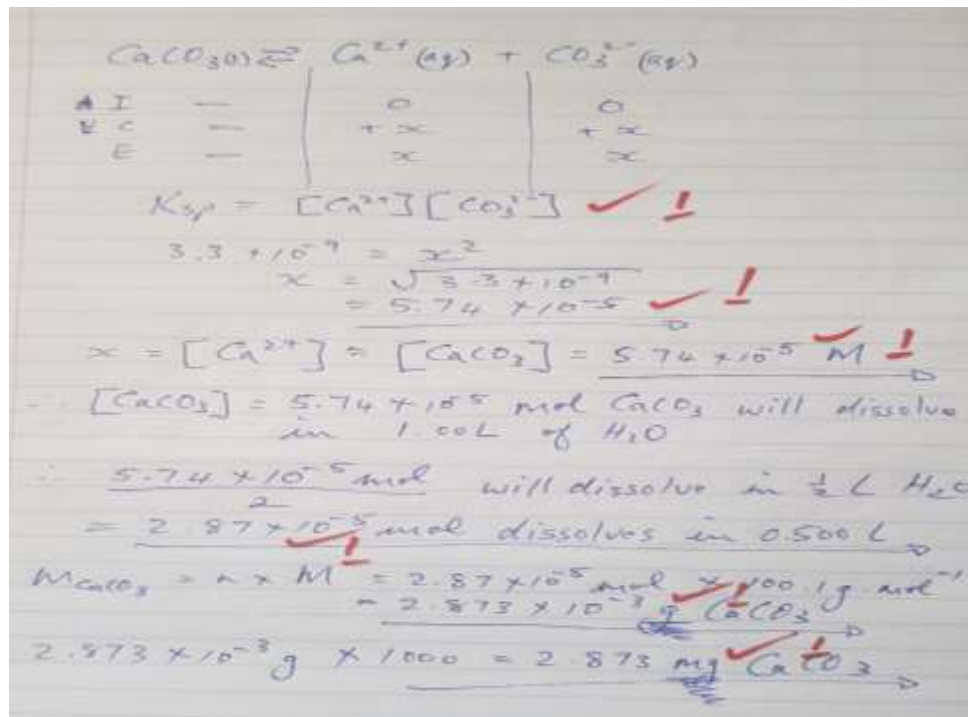 CaCO3(s) ⇌ Ca2+ (aq) + CO3 2- (aq)
I — 0 0
C — + x + x
E — x x
Ksp = [Ca2+][CO3 2-] ✓ 1
3.3 × 10-9 = x2
x = √3.3 × 10-9
= 5.74 × 10-5 ✓ 1
x = [Ca2+] = [CaCO3] = 5.74 × 10-5 M ✓ 1
∴ [CaCO3] = 5.74 × 10-5 mol CaCO3 will dissolve
in 1.00L of H2O
∴ 5.74 × 10-5 mol / 2 will dissolve in ½ L H2O
= 2.87 × 10-5 mol dissolves in 0.500 L ✓ 1
MCaCO3 = n × M = 2.87 × 10-5 mol × 100.1 g mol-1
= 2.873 × 10-3 g CaCO3 ✓ 1
2.873 × 10-3 g × 1000 = 2.873 mg CaCO3 ✓ 1